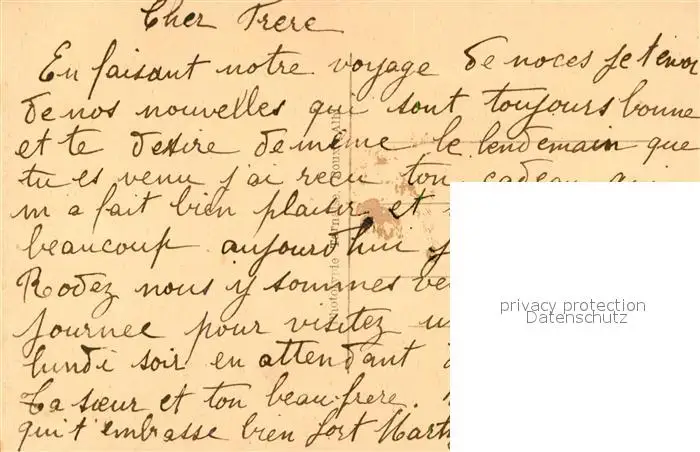 Cher Frere
En faisant notre voyage de noces je t'envoi
de nos nouvelles qui sont toujours bonne
et te desire de même le lendemain que
tu es venu j'ai recu ton cadeau qui
m a fait bien plaisir et
beaucoup aujourd'hui
Rodez nous y sommes
journee pour visitez
lundi soir en attendant
Ta sœur et ton beau-frere.
qui t'embrasse bien fort
privacy protection
Datenschutz